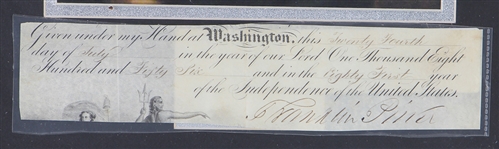 Given under my Hand at Washington, this Twenty Fourth
day of July in the year of our Lord One Thousand Eight
Hundred and Fifty Six and in the Eighty First year
of the Independence of the United States.
Franklin Pierce